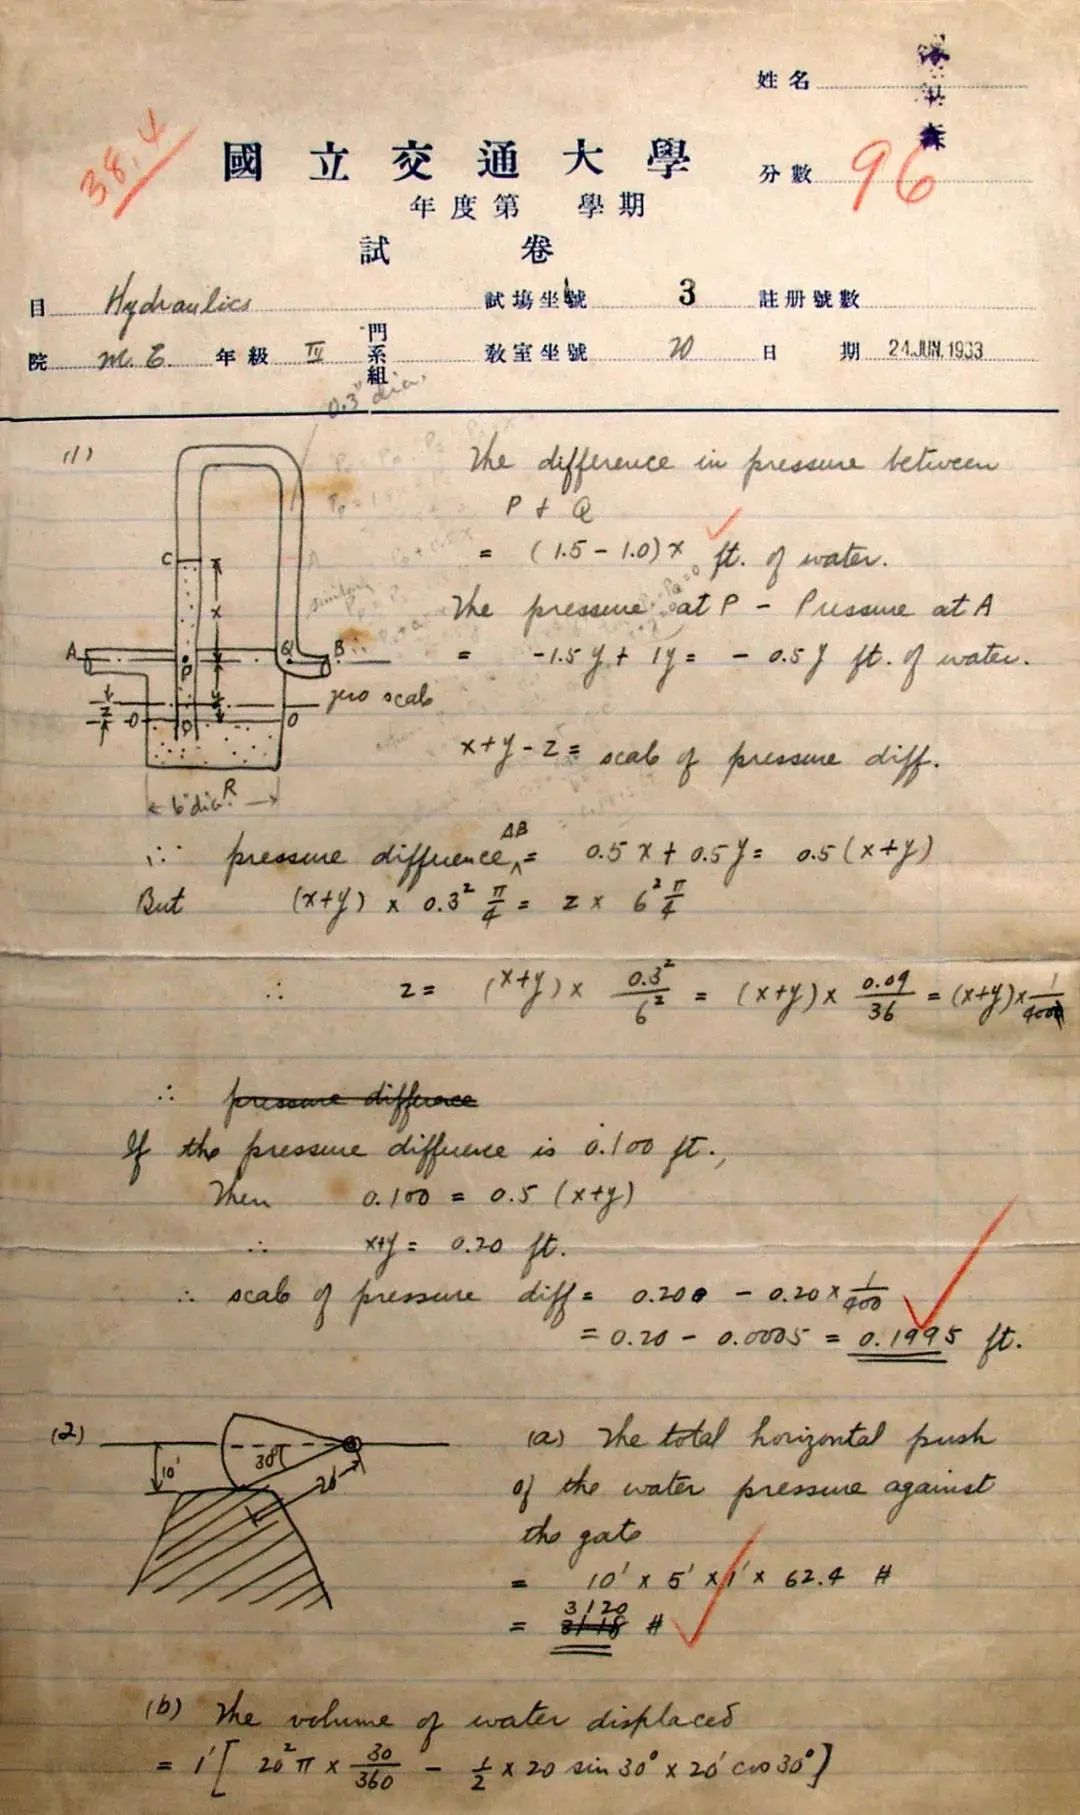 姓名
38.4
國立交通大學
分數 96
年度第 學期
試 卷
目 Hydraulics 試場坐號 3 註册號數
院 M. E. 年級 IV 門系組 教室坐號 20 日期 24.JUN.1933
0.3" dia.
(1) The difference in pressure between
P + Q
= (1.5 - 1.0)x ft. of water.
The pressure at P - Pressure at A
= -1.5y + 1y = - 0.5y ft. of water.
C
x
A P Q B
y
zero scale
z 0 0
6" dia. R
x+y-z = scale of pressure diff.
∴ pressure difference AB = 0.5x + 0.5y = 0.5(x+y)
But (x+y) x 0.3² π/4 = z x 6² π/4
∴ z = (x+y) x 0.3²/6² = (x+y) x 0.09/36 = (x+y) x 1/400
∴ pressure difference
If the pressure difference is 0.100 ft.,
Then 0.100 = 0.5 (x+y)
∴ x+y = 0.20 ft.
∴ scale of pressure diff = 0.200 - 0.20 x 1/400
= 0.20 - 0.0005 = 0.1995 ft.
(2) (a) The total horizontal push
10' 30° 20'
of the water pressure against
the gate
= 10' x 5' x 1' x 62.4 #
= 3120 #
(b) The volume of water displaced
= 1' [ 20² π x 30/360 - 1/2 x 20 sin 30° x 20' cos 30° ]